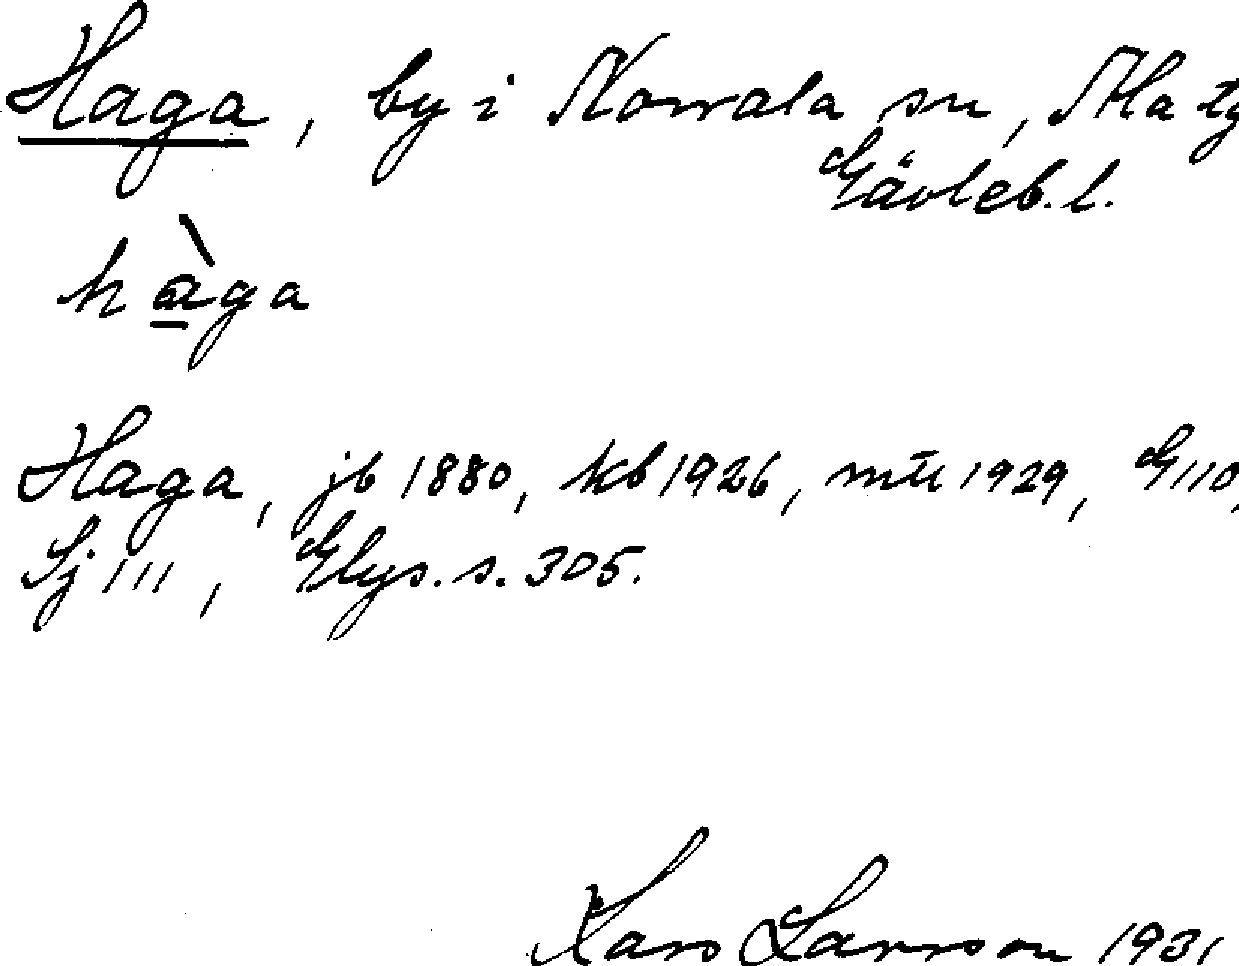 Haga, by i Norrala sn, Ala tg
Gävleb. l.
hàga
Haga, jb 1880, kb 1926, mtl 1929, G 110,
Sj 111, Glys. s. 305.
Lars Larsson 1931